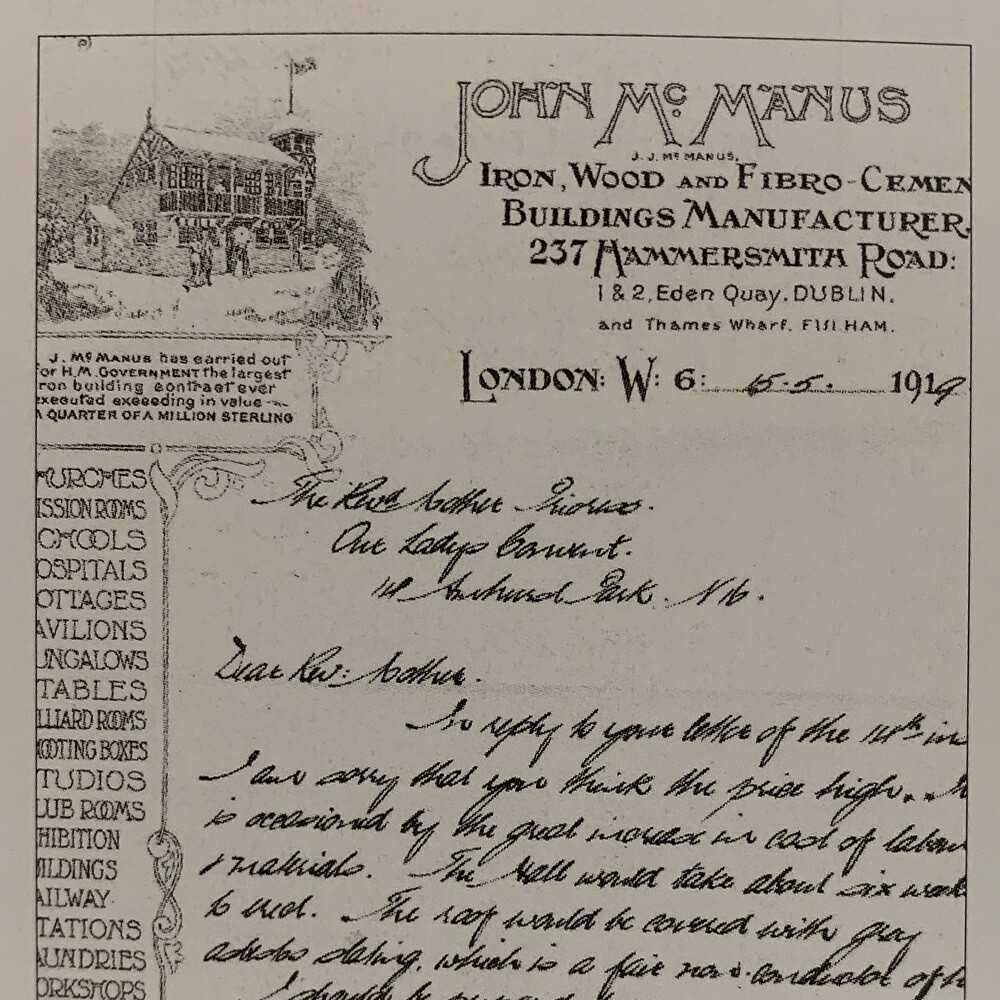 JOHN Mc MANUS
J. J. Mc MANUS,
IRON, WOOD AND FIBRO-CEMEN
BUILDINGS MANUFACTURER,
237 HAMMERSMITH ROAD:
1 & 2, Eden Quay, DUBLIN,
and Thames Wharf, FULHAM.
LONDON: W: 6: 15.5. 1919
J. McMANUS has carried out
or H.M. GOVERNMENT the largest
ron building contract ever
executed exceeding in value
A QUARTER OF A MILLION STERLING
HURCHES
ISSION ROOMS
CHOOLS
OSPITALS
OTTAGES
AVILIONS
UNGALOWS
TABLES
LLIARD ROOMS
HOOTING BOXES
TUDIOS
LUB ROOMS
HIBITION
UILDINGS
AILWAY
TATIONS
AUNDRIES
ORKSHOPS
The Revd Mother Prioress.
Our Ladys Convent.
14 Park. N 16.
Dear Rev: Mother.
In reply to your letter of the 14th in
I am sorry that you think the price high. It
is occasioned by the great increase in cost of labour
& materials. The Hall would take about six week
to erect. The roof would be covered with grey
asbestos slating, which is a fair non-conductor of h
I should be